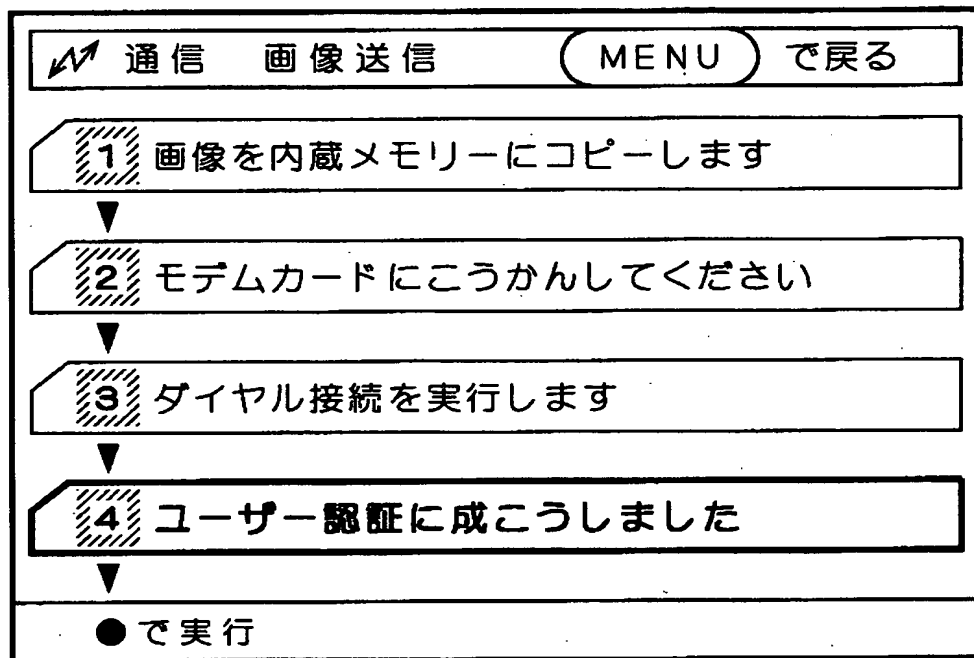 通信 画像送信 MENU で戻る
1 画像を内蔵メモリーにコピーします
2 モデムカードにこうかんしてください
3 ダイヤル接続を実行します
4 ユーザー認証に成こうしました
●で実行